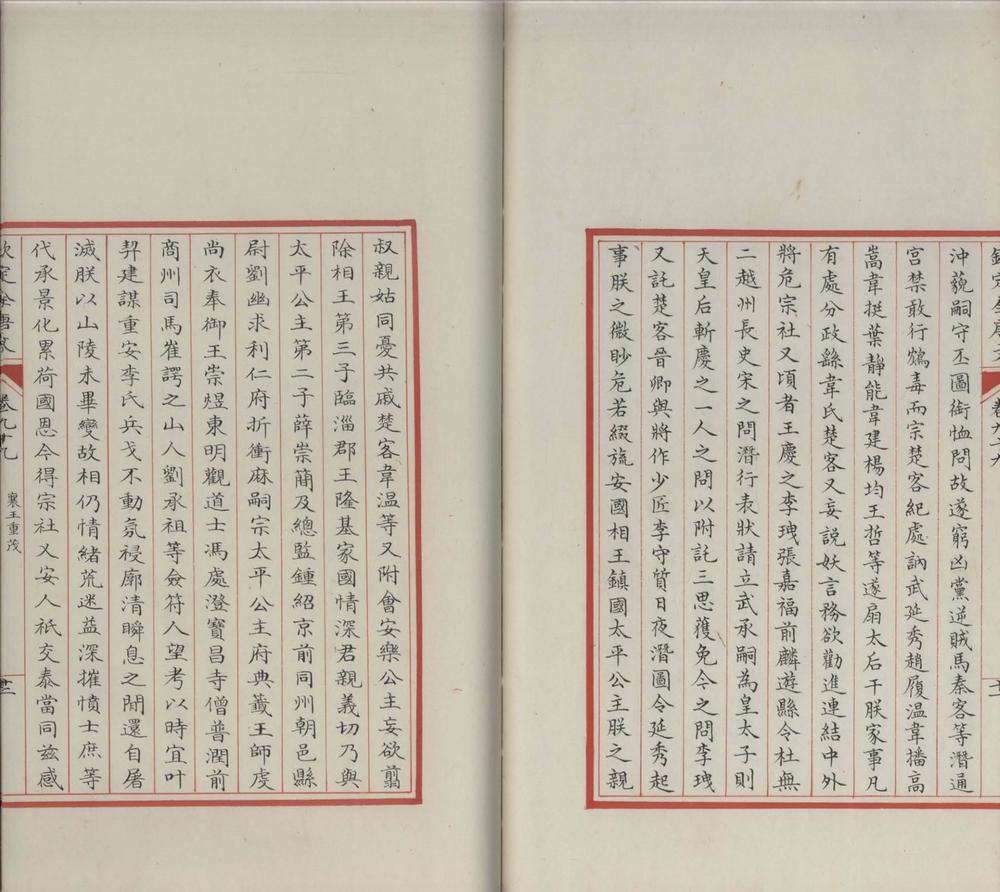 沖藐嗣守丕圖銜恤問故遂窮凶黨逆賊馬秦客等潛通
宮禁敢行鴆毒而宗楚客紀處訥武延秀趙履溫韋播高
嵩韋挺葉靜能韋建楊均王哲等遂扇太后干朕家事凡
有處分政繇韋氏楚客又妄説妖言務欲勸進連結中外
將危宗社又頃者王慶之李琇張嘉福前麟遊縣令杜無
二越州長史宋之問潛行表狀請立武承嗣為皇太子則
天皇后斬慶之一人之問以附託三思獲免令之問李琇
又託楚客晉卿與將作少匠李守質日夜潛圖令延秀起
事朕之微眇危若綴旒安國相王鎮國太平公主朕之親
叔親姑同憂共戚楚客韋温等又附會安樂公主妄欲翦
除相王第三子臨淄郡王隆基家國情深君親義切乃與
太平公主第二子薛崇簡及總監鍾紹京前同州朝邑縣
尉劉幽求利仁府折衝麻嗣宗太平公主府典籤王師虔
尚衣奉御王崇煜東明觀道士馮處澄寶昌寺僧普潤前
商州司馬崔諤之山人劉承祖等僉符人望考以時宜叶
契建謀重安李氏兵戈不動氛祲廓清瞬息之間還自屠
滅朕以山陵未畢變故相仍情緒荒迷益深摧憤士庶等
代承景化累荷國恩今得宗社乂安人祇交泰當同兹感
襄王重茂